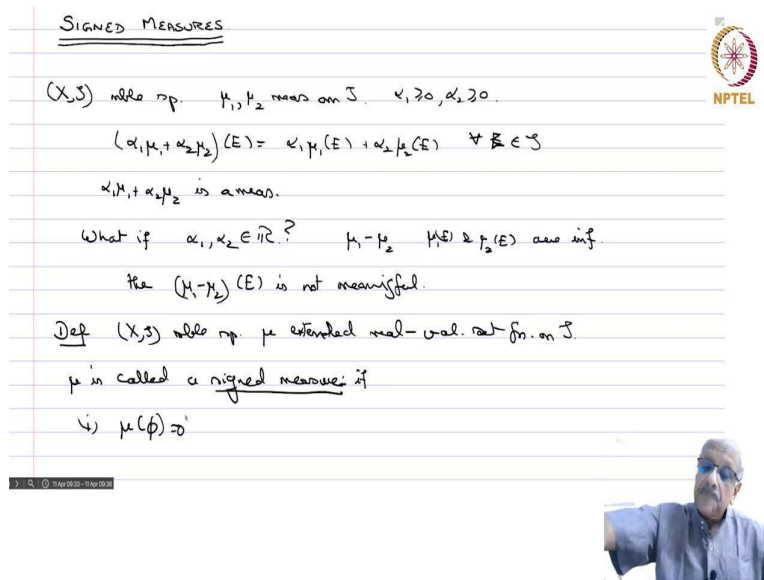 SIGNED MEASURES
(X,S) mble sp. μ₁, μ₂ meas on S. α₁≥0, α₂≥0.
(α₁μ₁+α₂μ₂)(E) = α₁μ₁(E) + α₂μ₂(E) ∀ E ∈ S
α₁μ₁+α₂μ₂ is a meas.
What if α₁, α₂ ∈ ℝ? μ₁-μ₂ μ₁(E) & μ₂(E) are inf.
the (μ₁-μ₂)(E) is not meanigful.
Def (X,S) mble sp. μ extended real-val. set fn. on S.
μ is called a signed measure: if
(i) μ(φ)=0
NPTEL
11 Apr 09:33 - 11 Apr 09:36